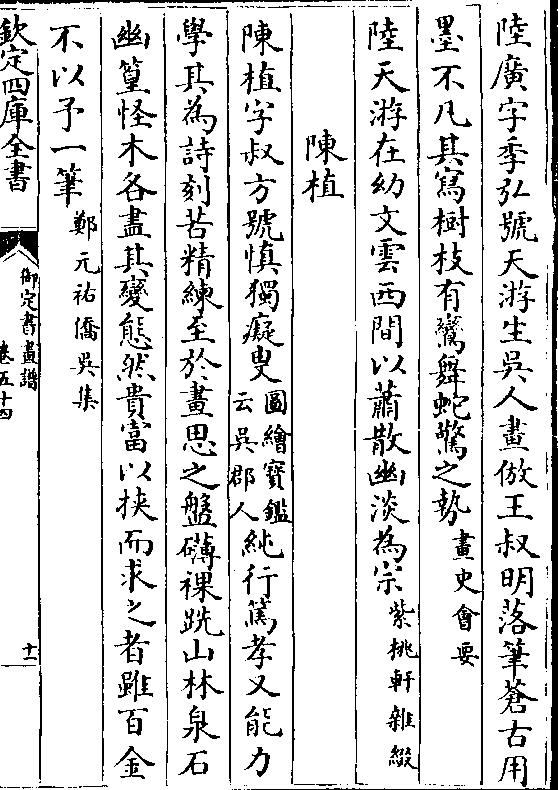 陸廣字季弘號天游生吳人畫倣王叔明落筆蒼古用
墨不凡其寫樹枝有鸞舞蛇驚之勢畫史會要
陸天游在幼文雲西間以蕭散幽淡為宗紫桃軒雜綴
陳植
陳植字叔方號慎獨癡叟圖繪寶鑑云吳郡人純行篤孝又能力
學其為詩刻苦精練至於畫思之盤礴祼跣山林泉石
幽篁怪木各盡其變態然貴富以挾而求之者雖百金
不以予一筆鄭元祐僑吳集
欽定四庫全書
御定書畫譜
卷五十四
十一